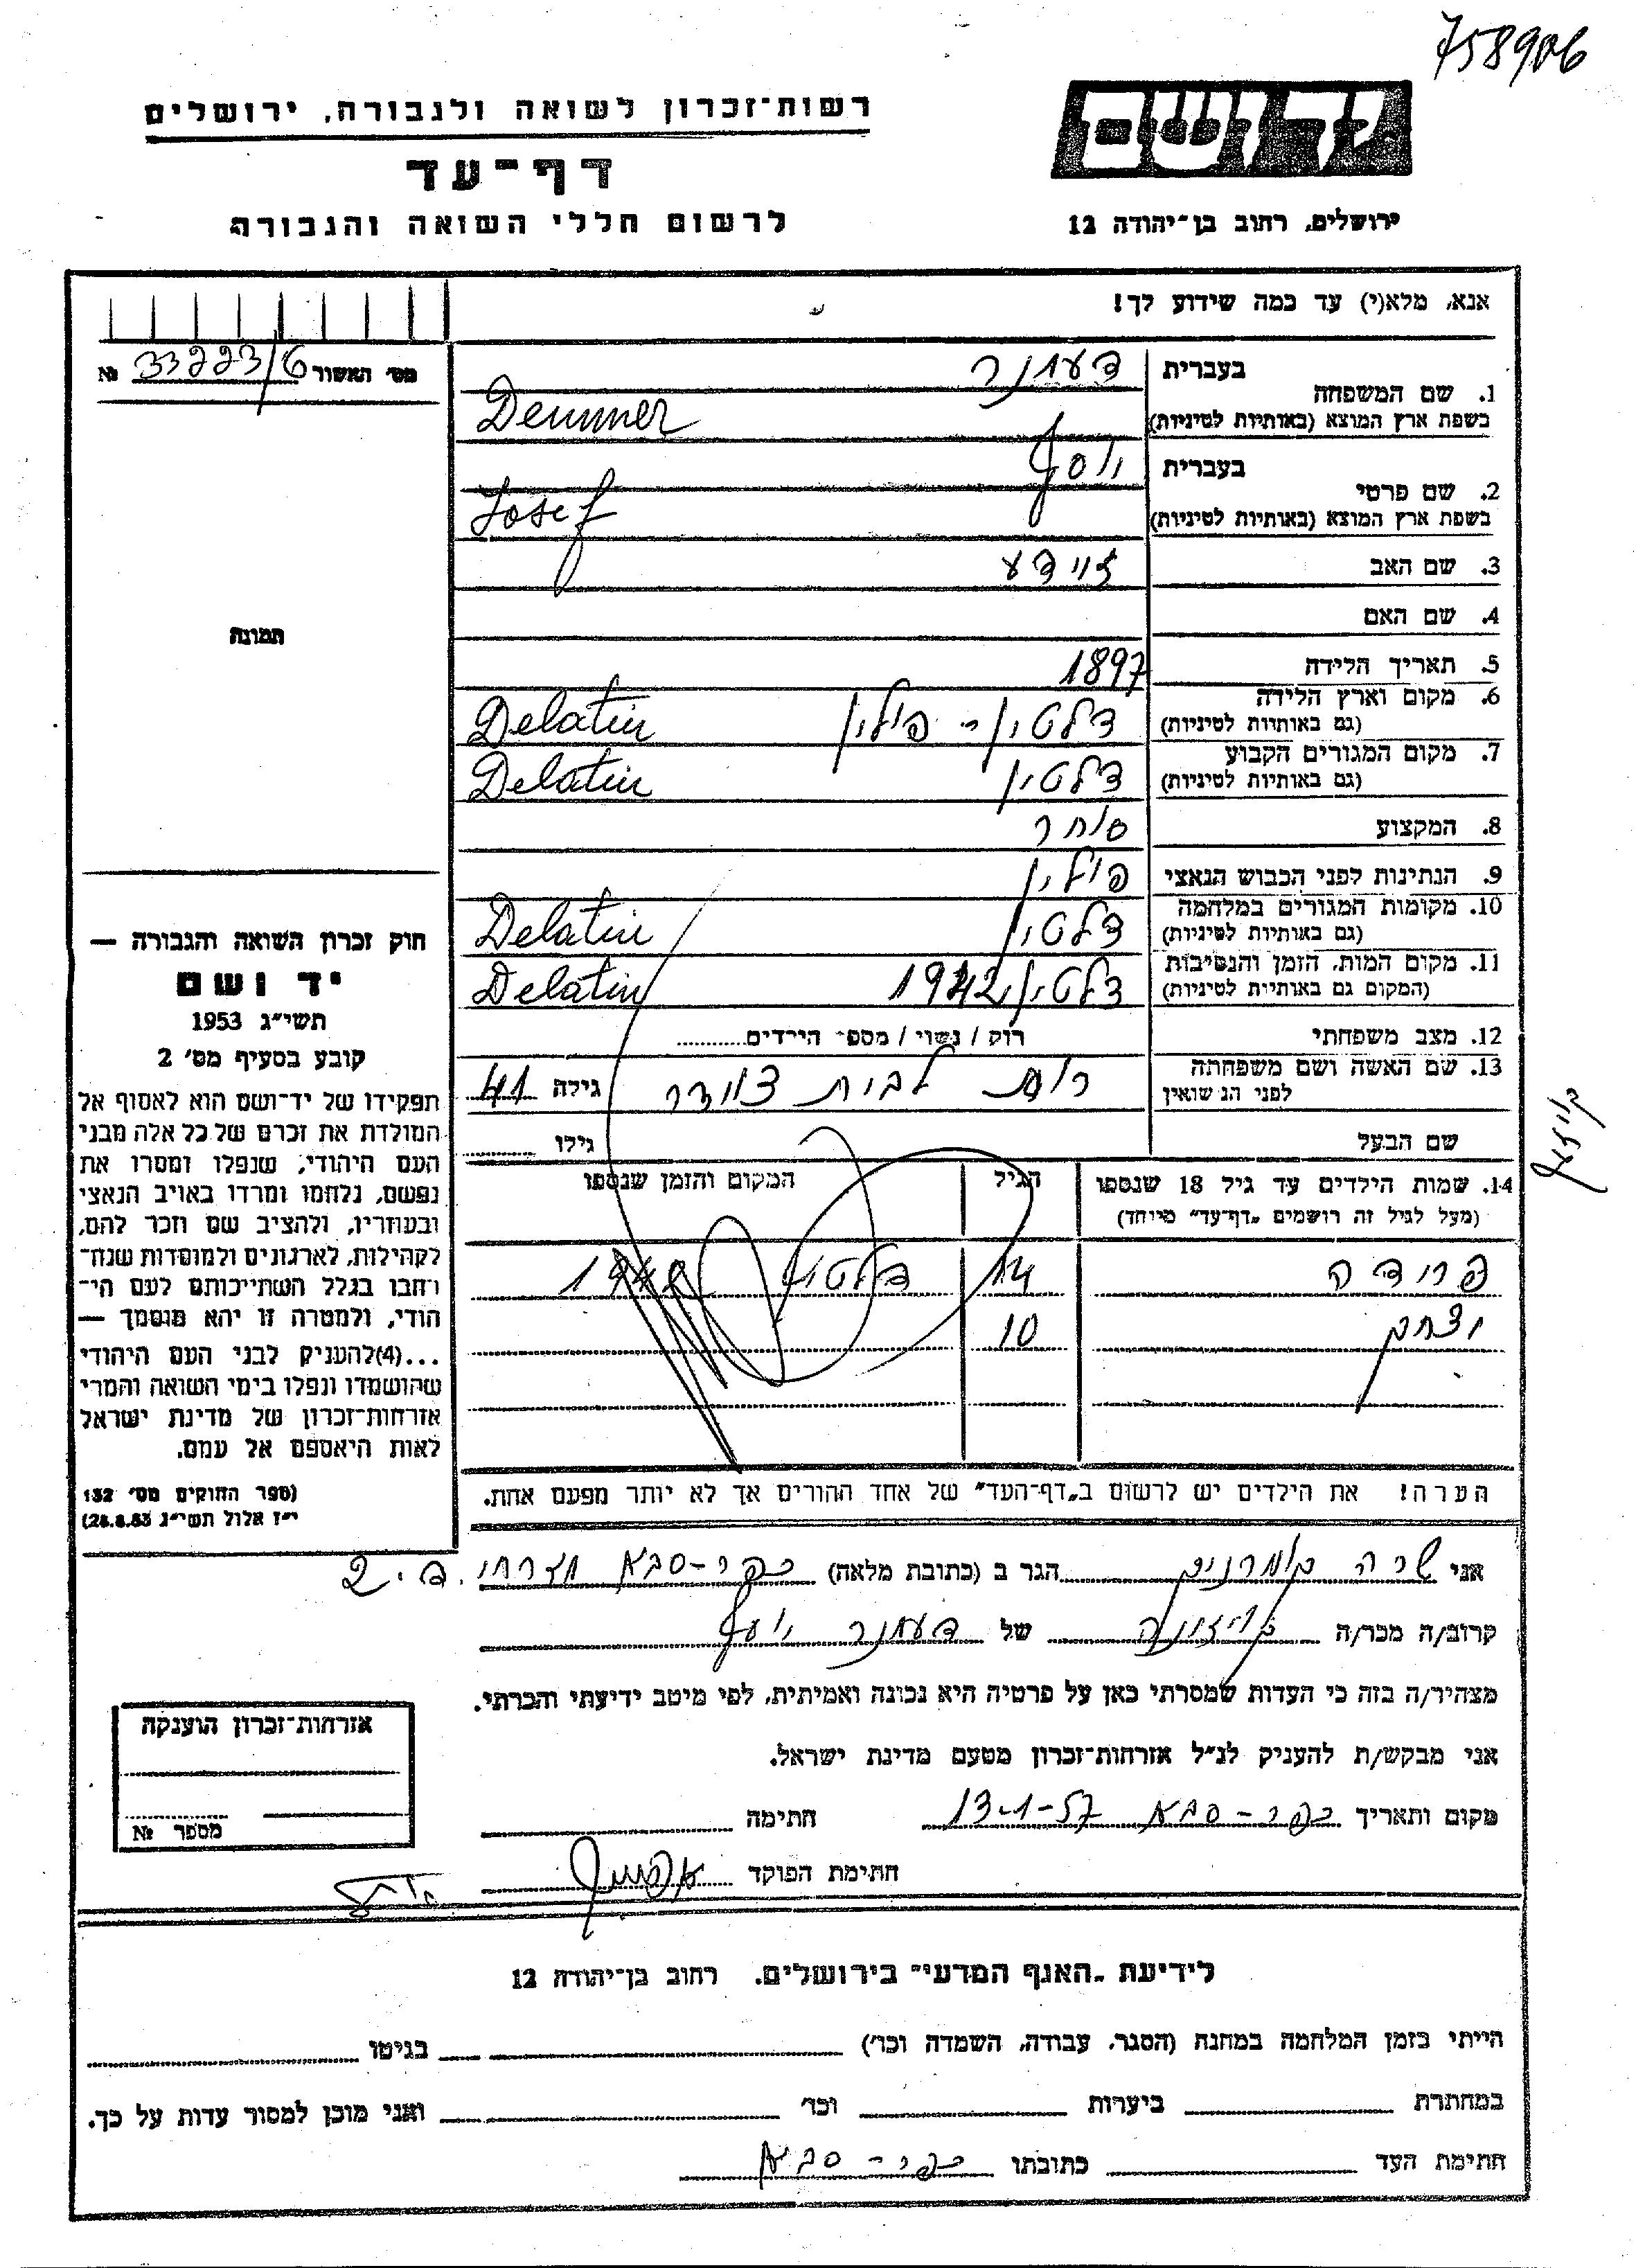 758906
רשות־זכרון לשואה ולגבורה, ירושלים
דף־עד
לרשום חללי השואה והגבורה
יד ושם
ירושלים, רחוב בן־יהודה 12
אנא, מלא(י) עד כמה שידוע לך!
מס' האשור 33223/6 №
תמונה
1. שם המשפחה בעברית דעמנר
בשפת ארץ המוצא (באותיות לטיניות) Demner
2. שם פרטי בעברית יוסף
בשפת ארץ המוצא (באותיות לטיניות) Josef
3. שם האב זיידע
4. שם האם
5. תאריך הלידה 1897
6. מקום וארץ הלידה דלטין - פולין Delatin
(גם באותיות לטיניות)
7. מקום המגורים הקבוע דלטין Delatin
(גם באותיות לטיניות)
8. המקצוע סוחר
9. הנתינות לפני הכבוש הנאצי פולין
10. מקומות המגורים במלחמה דלטין Delatin
(גם באותיות לטיניות)
11. מקום המות, הזמן והנסיבות דלטין 1942 Delatin
(המקום גם באותיות לטיניות)
12. מצב משפחתי רוק / נשוי / מספר הילדים
13. שם האשה ושם משפחתה לבית גילה 41
לפני הנשואין
שם הבעל גילו
14. שמות הילדים עד גיל 18 שנספו הגיל המקום והזמן שנספו
(מעל לגיל זה רושמים „דף־עד" מיוחד)
פרידה 14 דלטין 1942
יצחק 10
הערה! את הילדים יש לרשום ב„דף־העד" של אחד ההורים אך לא יותר מפעם אחת.
חוק זכרון השואה והגבורה —
יד ושם
תשי"ג 1953
קובע בסעיף מס' 2
תפקידו של יד־ושם הוא לאסוף אל
המולדת את זכרם של כל אלה מבני
העם היהודי, שנפלו ומסרו את
נפשם, נלחמו ומרדו באויב הנאצי
ובעוזריו, ולהציב שם וזכר להם,
לקהילות, לארגונים ולמוסדות שנח־
רבו בגלל השתייכותם לעם הי־
הודי, ולמטרה זו יהא מוסמך —
...(4)להעניק לבני העם היהודי
שהושמדו ונפלו בימי השואה והמרי
אזרחות־זכרון של מדינת ישראל
לאות היאספם אל עמם.
(ספר החוקים מס' 132
י"ז אלול תשי"ג 28.8.53)
אני שרה הגר ב (כתובת מלאה) כפר-סבא
קרוב/ה מכר/ה של דעמנר יוסף
מצהיר/ה בזה כי העדות שמסרתי כאן על פרטיה היא נכונה ואמיתית, לפי מיטב ידיעתי והכרתי.
אני מבקש/ת להעניק לנ"ל אזרחות־זכרון מטעם מדינת ישראל.
מקום ותאריך כפר-סבא 13-1-57 חתימה
חתימת הפוקד
אזרחות־זכרון הוענקה
מספר №
לידיעת „האגף המדעי" בירושלים, רחוב בן־יהודה 12
הייתי בזמן המלחמה במחנה (הסגר, עבודה, השמדה וכו') בגיטו
במחתרת ביערות וכו' ואני מוכן למסור עדות על כך.
חתימת העד כתובתו כפר-סבא